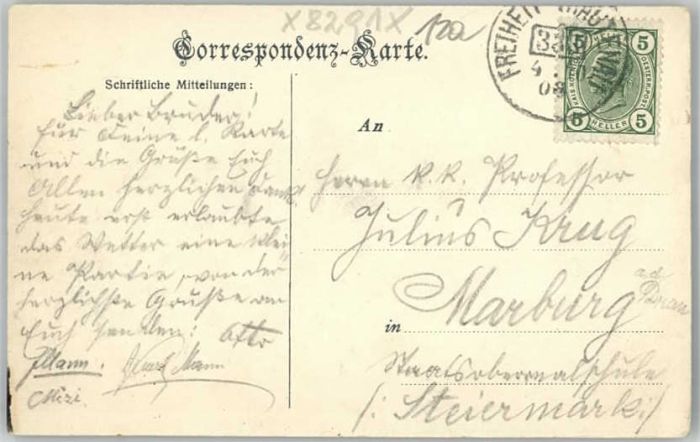 X8291X
12a
Correspondenz-Karte.
Schriftliche Mitteilungen:
Lieber Bruder!
Für Deine l. Karte
und die Grüße Euch
Allen herzlichen Dank.
Heute erst erlaubte
das Wetter eine klei-
ne Partie, von der
herzlichste Grüße an
Euch senden: Otto
Mann. Karl Mann
Mizi.
FREIHEIT
4
08
5 5
5 HELLER 5
An
Herrn K. K. Professor
Julius Krug
in Marburg a.d.
Drau
Staatsoberrealschule
/: Steiermark :/